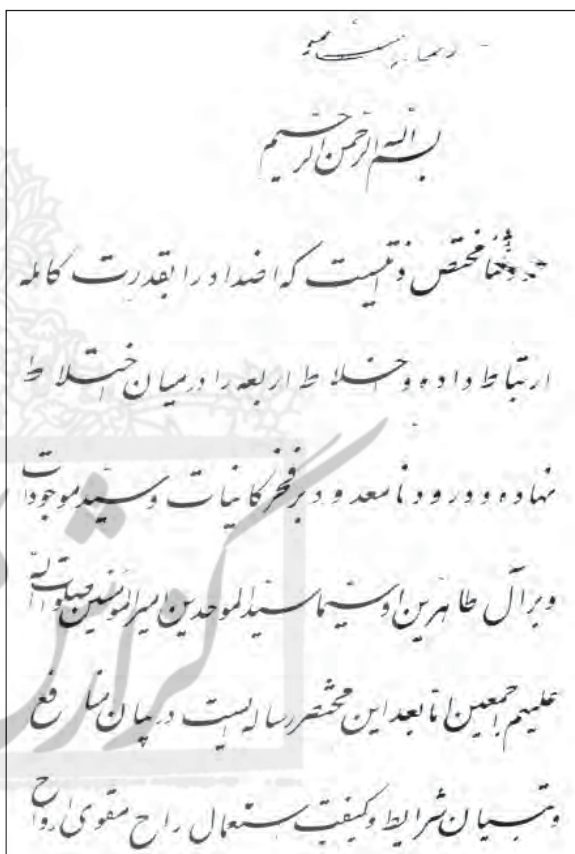 بسم الله الرحمن الرحیم
ثنا مختص ذاتیست که اضداد را بقدرت کامله
ارتباط داده و اخلاط اربعه را در میان اختلاط
نهاده و درود نامعدود بر فخر کاینات و سید موجودات
و بر آل طاهرین او سیما سید الموحدین امیرالمؤمنین صلوات الله
علیهم اجمعین اما بعد این مختصر رساله ایست در بیان منافع
و تبیان شرایط و کیفیت استعمال راح مقوی ارواح
گزارش